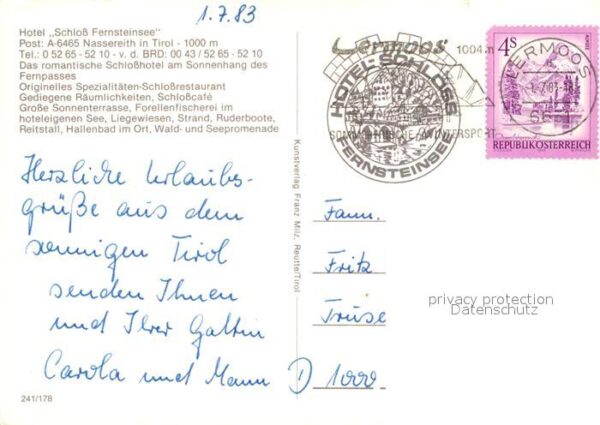 1.7.83
Hotel „Schloß Fernsteinsee"
Post: A-6465 Nassereith in Tirol - 1000 m
Tel.: 0 52 65 - 52 10 - v. d. BRD: 00 43 / 52 65 - 52 10
Das romantische Schloßhotel am Sonnenhang des
Fernpasses
Originelles Spezialitäten-Schloßrestaurant
Gediegene Räumlichkeiten, Schloßcafé
Große Sonnenterrasse, Forellenfischerei im
hoteleigenen See, Liegewiesen, Strand, Ruderboote,
Reitstall, Hallenbad im Ort, Wald- und Seepromenade
Lermoos 1004 m
HOTEL-SCHLOSS
FERNSTEINSEE
WINTERSPORT
LERMOOS
4S
REPUBLIK ÖSTERREICH
Kunstverlag Franz Milz, Reutte/Tirol
Herzliche Urlaubs-
grüße aus dem
sonnigen Tirol
senden Ihnen
und Ihrer Gattin
Carola und Mann
Fam.
Fritz
D 1000
privacy protection
Datenschutz
241/178